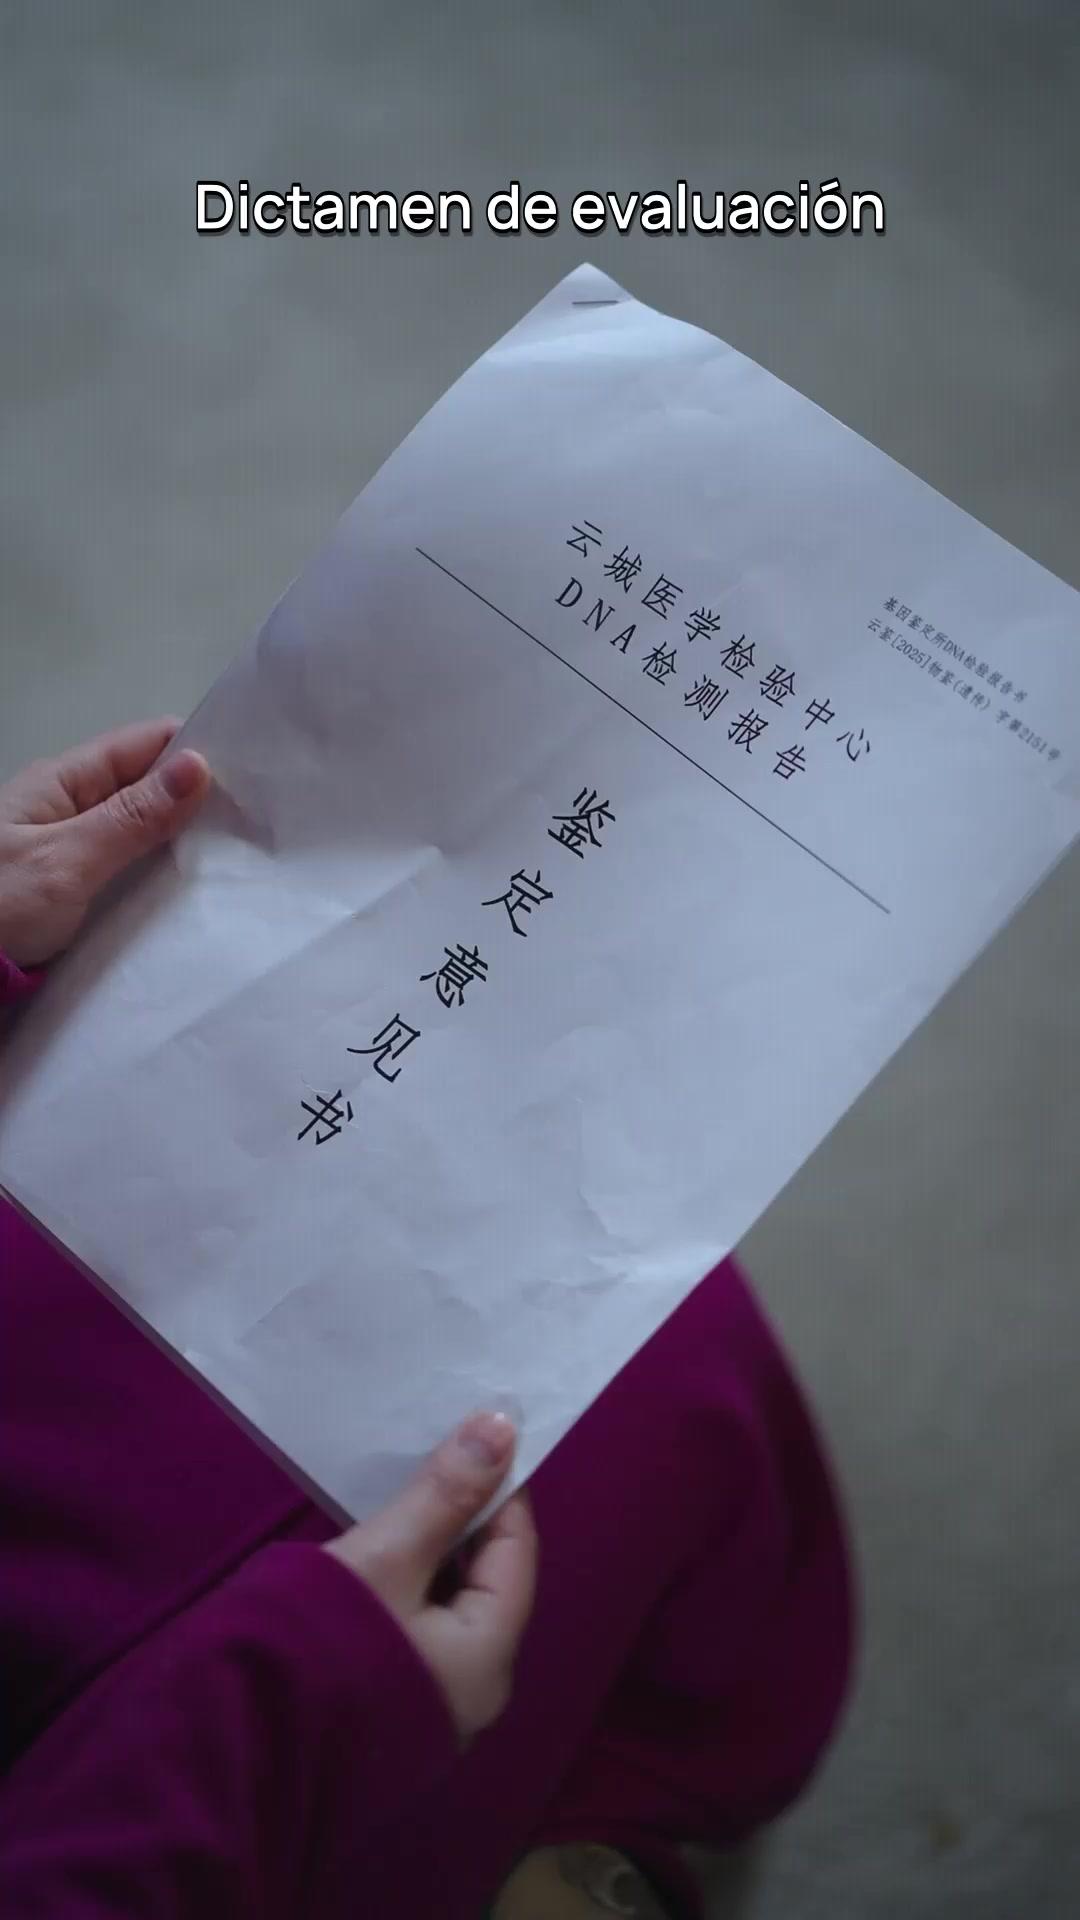 Dictamen de evaluación
云城医学检验中心
DNA检测报告
基因鉴定所DNA检验报告书
云鉴[2025]物鉴(遗传)字第2151号
鉴定意见书